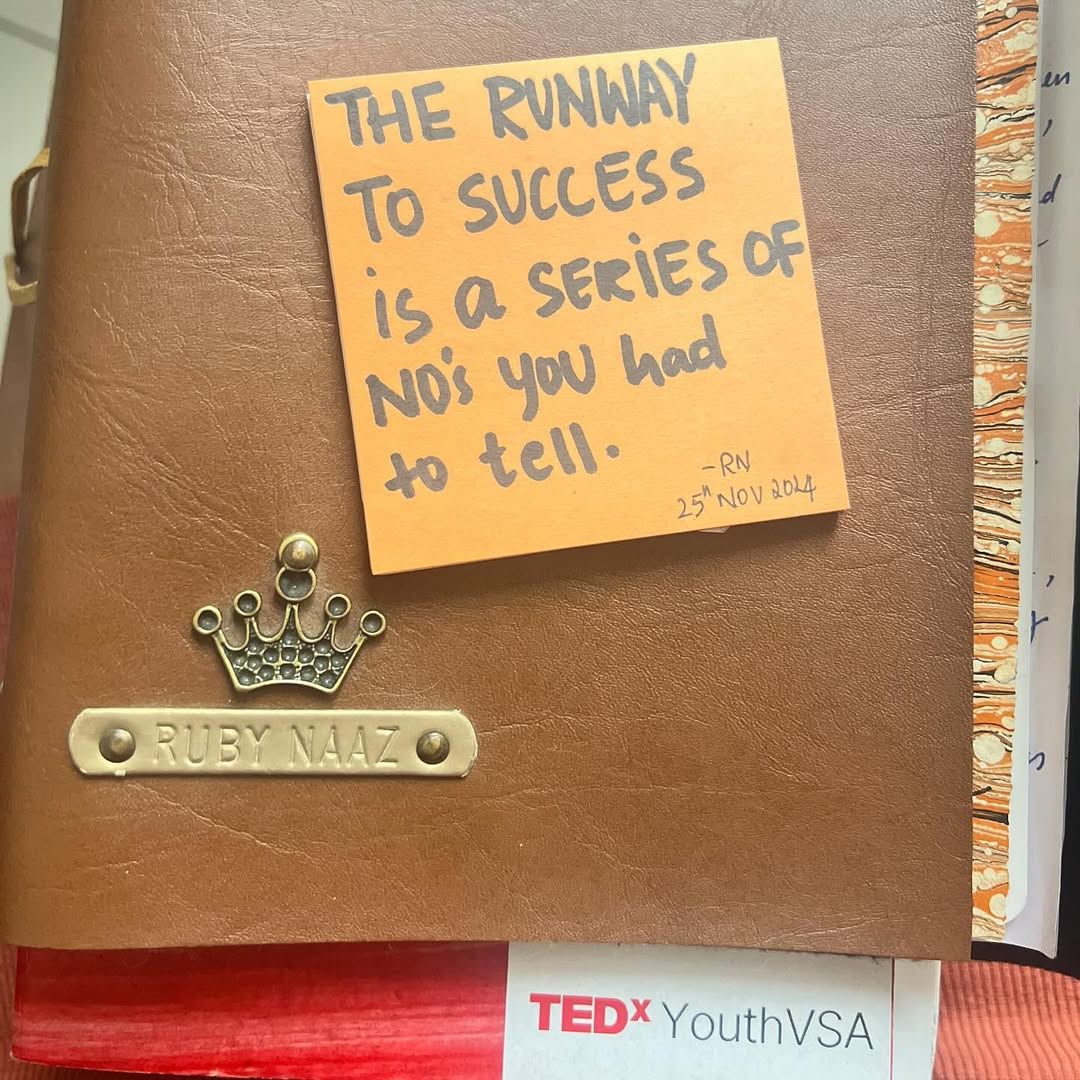 THE RUNWAY
TO SUCCESS
is a SERiES OF
NO's YOU had
to tell.
-RN
25th NOV 2024
RUBY NAAZ
TEDx YouthVSA